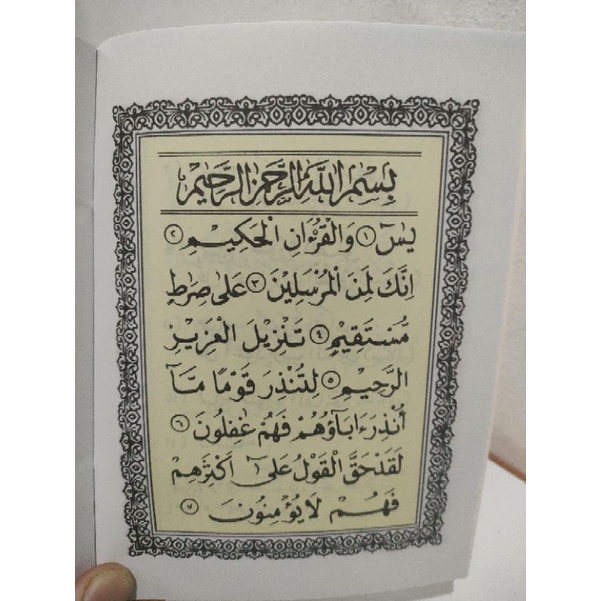 بِسْمِ اللَّهِ الرَّحْمَنِ الرَّحِيْمِ
يٰسٓ ۝١ وَالْقُرْءَانِ الْحَكِيْمِ ۝٢
اِنَّكَ لَمِنَ الْمُرْسَلِيْنَ ۝٣ عَلٰى صِرَٰطٍ
مُسْتَقِيْمٍ ۝٤ تَنْزِيْلَ الْعَزِيْزِ
الرَّحِيْمِ ۝٥ لِتُنْذِرَ قَوْمًا مَّآ
أُنْذِرَ ءَابَآؤُهُمْ فَهُمْ غٰفِلُوْنَ ۝٦
لَقَدْ حَقَّ الْقَوْلُ عَلٰىٓ أَكْثَرِهِمْ
فَهُمْ لَا يُؤْمِنُوْنَ ۝٧